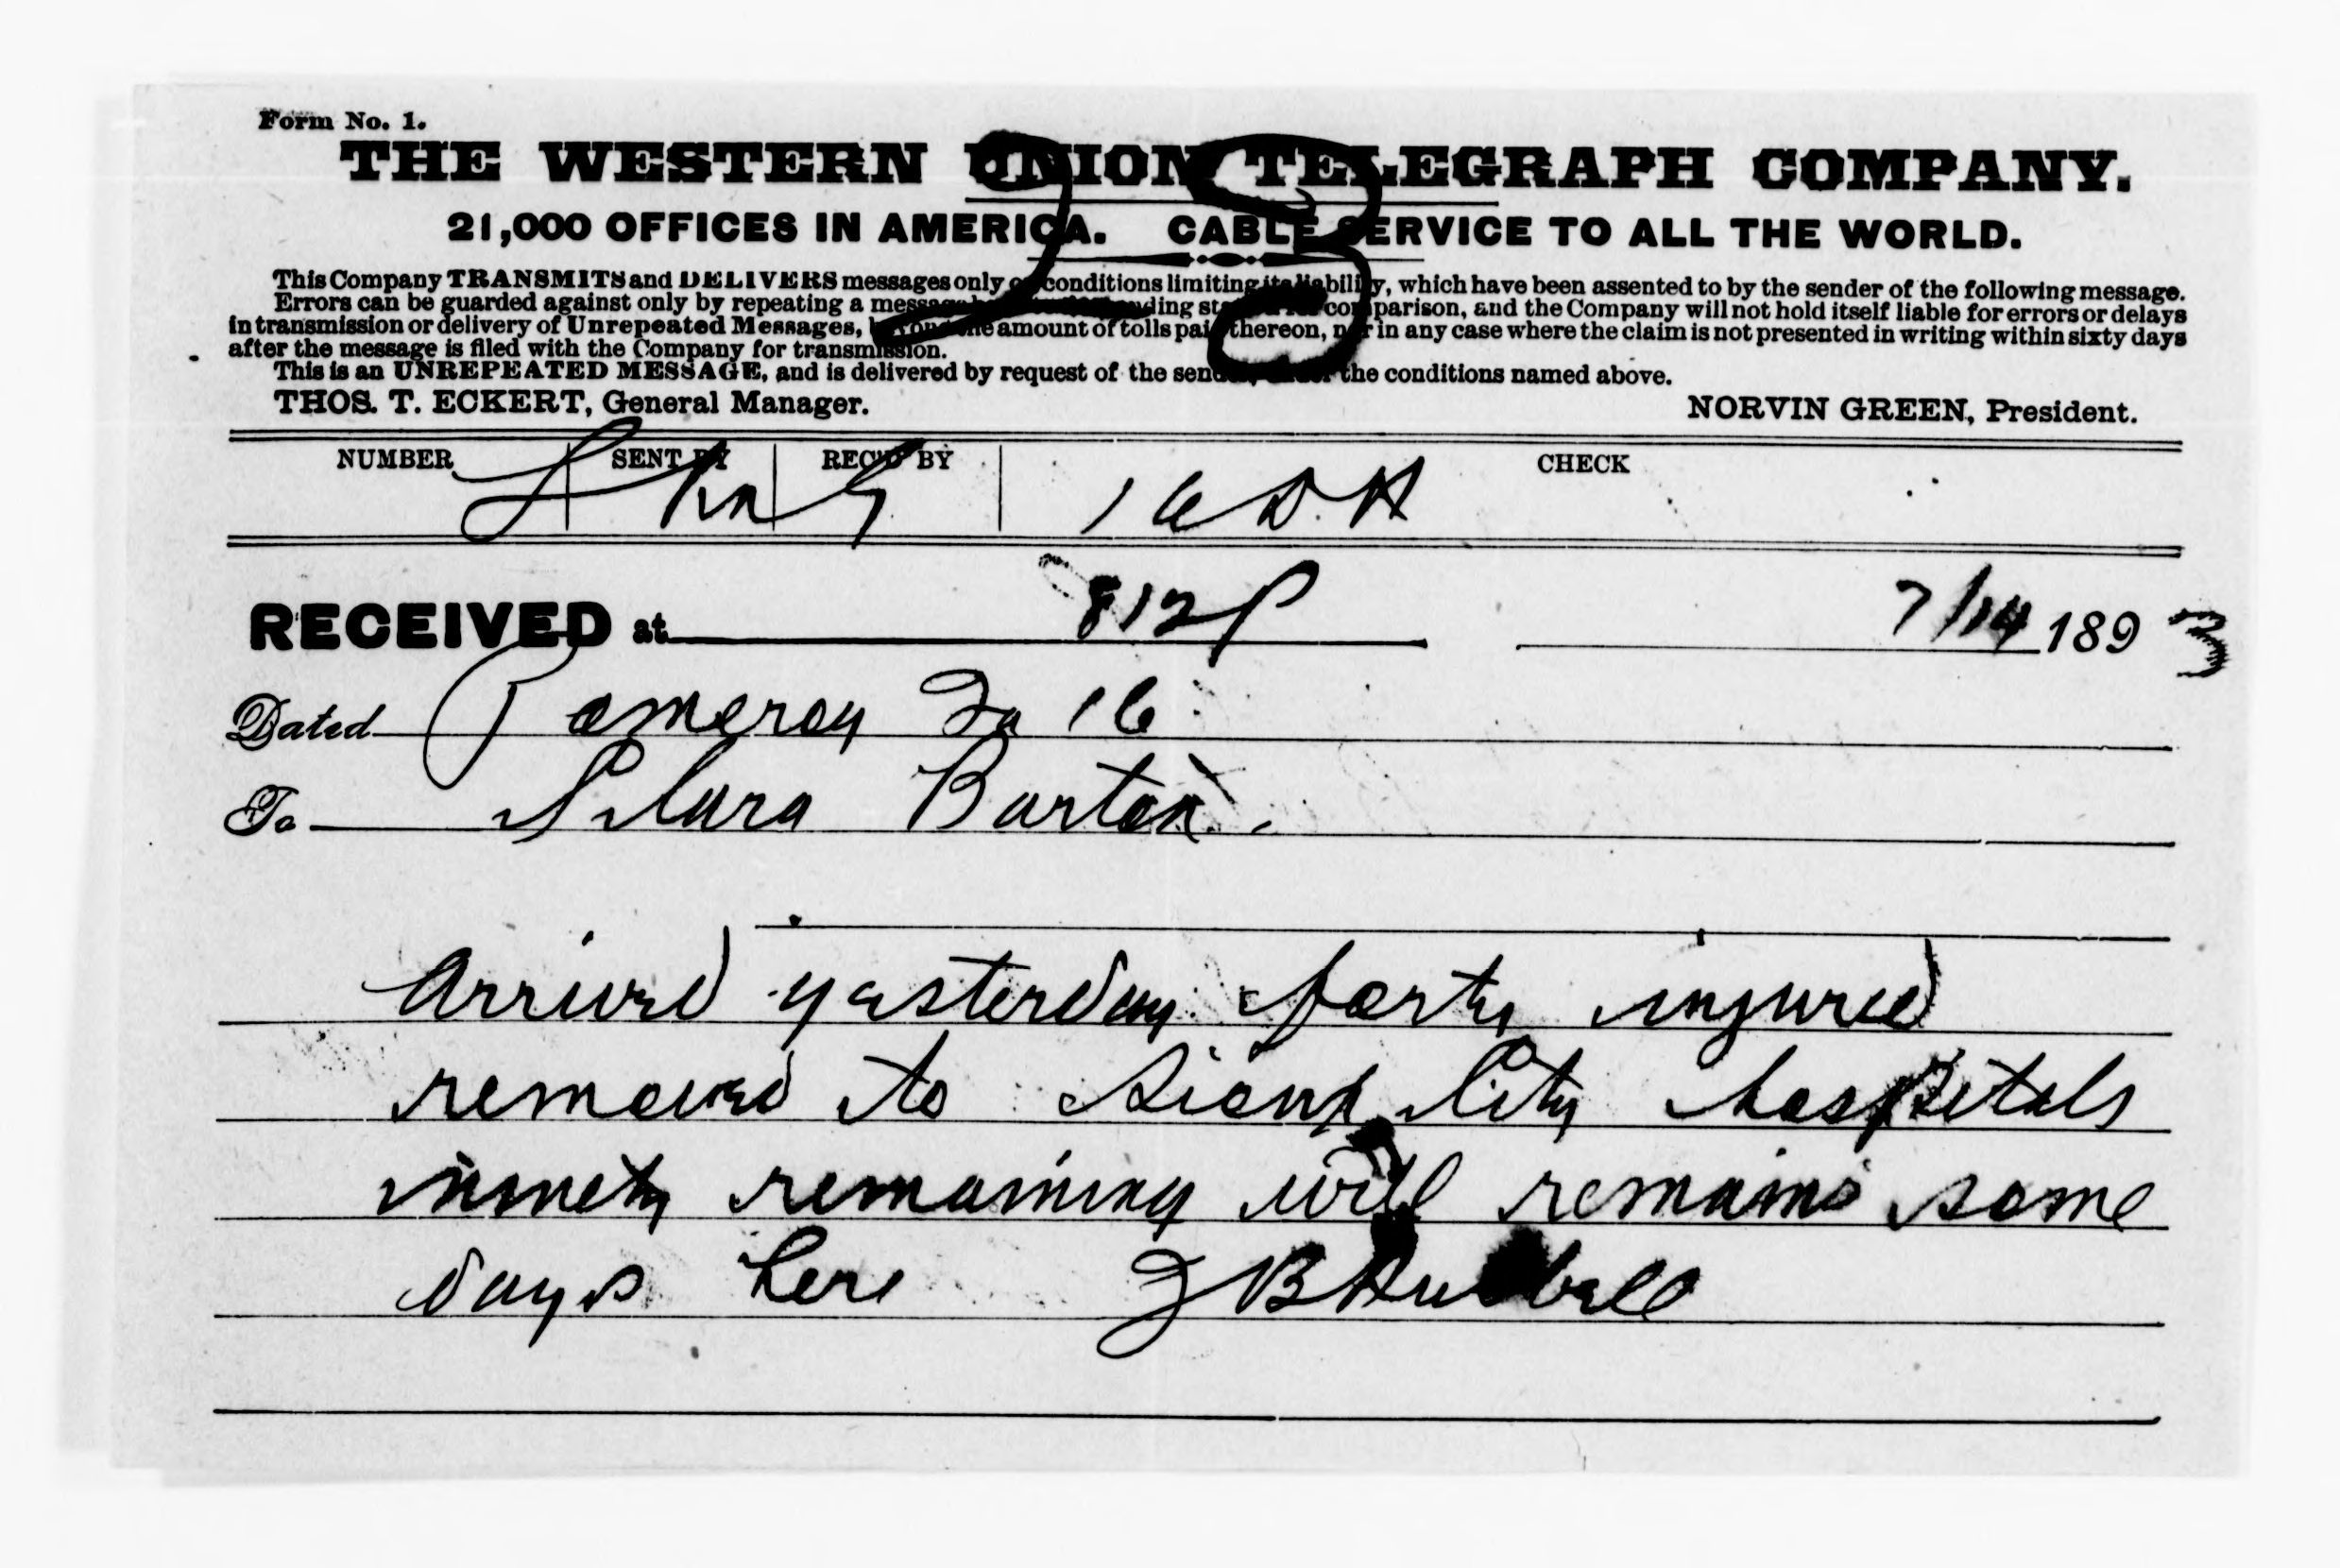 Form No. 1.
THE WESTERN UNION TELEGRAPH COMPANY.
23
21,000 OFFICES IN AMERICA. CABLE SERVICE TO ALL THE WORLD.
This Company TRANSMITS and DELIVERS messages only on conditions limiting its liability, which have been assented to by the sender of the following message.
Errors can be guarded against only by repeating a message back to the sending station for comparison, and the Company will not hold itself liable for errors or delays
in transmission or delivery of Unrepeated Messages, beyond the amount of tolls paid thereon, nor in any case where the claim is not presented in writing within sixty days
after the message is filed with the Company for transmission.
This is an UNREPEATED MESSAGE, and is delivered by request of the sender, under the conditions named above.
THOS. T. ECKERT, General Manager. NORVIN GREEN, President.
NUMBER SENT BY REC'D BY CHECK
16 D.H
RECEIVED at 812P 7/14 1893
Dated Pomeroy Ia 16
To Clara Barton.
Arrived yesterday forty injured
removed to Sioux City hospitals
ninety remaining will remain some
days here J B Hubbell